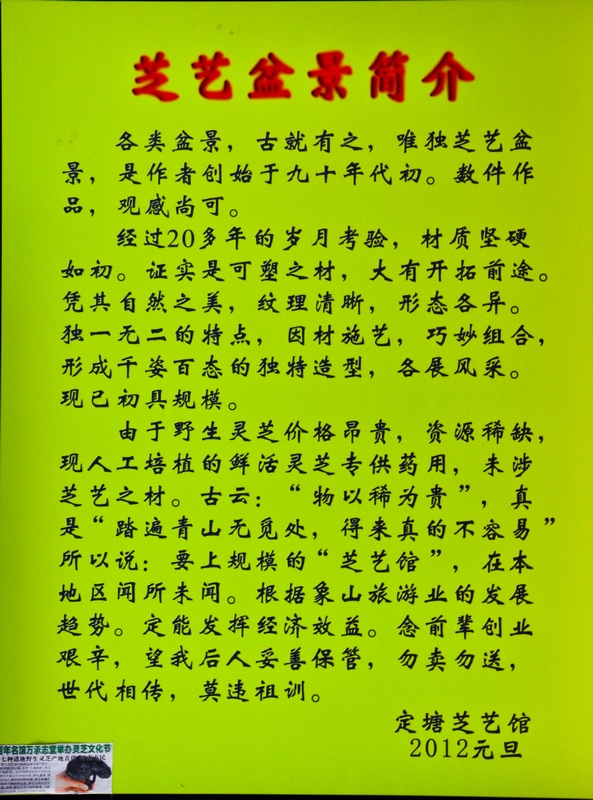 芝艺盆景简介
各类盆景，古就有之，唯独芝艺盆
景，是作者创始于九十年代初。数件作
品，观感尚可。
经过20多年的岁月考验，材质坚硬
如初。证实是可塑之材，大有开拓前途。
凭其自然之美，纹理清晰，形态各异。
独一无二的特点，因材施艺，巧妙组合，
形成千姿百态的独特造型，各展风采。
现已初具规模。
由于野生灵芝价格昂贵，资源稀缺，
现人工培植的鲜活灵芝专供药用，未涉
芝艺之材。古云：“物以稀为贵”，真
是“踏遍青山无觅处，得来真的不容易”
所以说：要上规模的“芝艺馆”，在本
地区闻所未闻。根据象山旅游业的发展
趋势。定能发挥经济效益。念前辈创业
艰辛，望我后人妥善保管，勿卖勿送，
世代相传，莫违祖训。
定塘芝艺馆
2012元旦
百年名馆万承志堂举办灵芝文化节
七种道地野生灵芝产地直